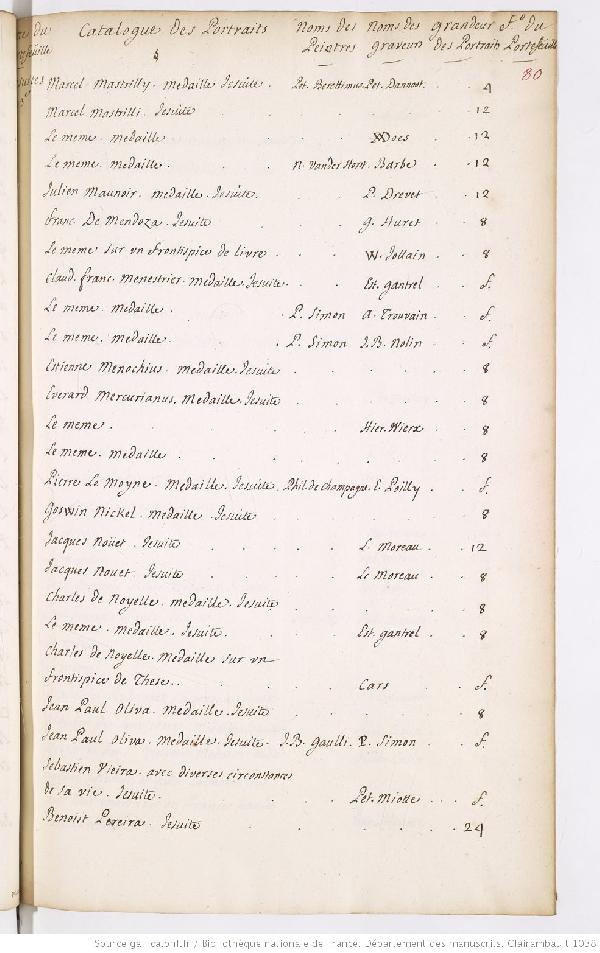 Catalogue des Portraits Noms des Noms des Grandeur f.º du
Peintres graveurs des Portraits Portefeuille
80
Marcel Mastrilly. medaille Jesuite. Pet. Berettinus. Pet. Dannoot. 4
Marcel Mastrilli. Jesuite 12
Le meme. medaille Does 12
Le meme. medaille. N. Vander Horst. Barbe. 12
Julien Maunoir. medaille. Jesuite. P. Drevet 12
franc. De Mendoza. Jesuite G. Huret 8
Le meme sur vn frontispice de livre W. Jollain 8
Claud. franc. Menestrier. medaille. Jesuite. Est. gantrel f.
Le meme. medaille. P. Simon A. Trouvain. f.
Le meme. medaille. P. Simon J.B. Nolin f.
Estienne Menochius. medaille. Jesuite 8
Everard Mercurianus. Medaille. Jesuite 8
Le meme. Hier. Wierx 8
Le meme. medaille 8
Pierre Le Moyne. Medaille. Jesuite. Phil. de Champagne. F. Poilly f.
Goswin Nickel. medaille. Jesuite 8
Jacques Nouet. Jesuite L. Moreau. 12
Jacques Nouet. Jesuite Le Moreau 8
Charles de Noyelle. medaille. Jesuite 8
Le meme. medaille. Jesuite. Est. gantrel 8
Charles de Noyelle. Medaille sur vn
frontispice de These. Cars f.
Jean Paul Oliva. Medaille. Jesuite 8
Jean Paul Oliva. Medaille. Jesuite. J.B. Gaulli. P. Simon f.
Sebastien Vieira. avec diverses circonstances
de sa vie. Jesuite. Pet. Miotte f.
Benoist Pereira. Jesuite 24
Source gallica.bnf.fr / Bibliothèque nationale de France. Département des manuscrits. Clairambault 1038